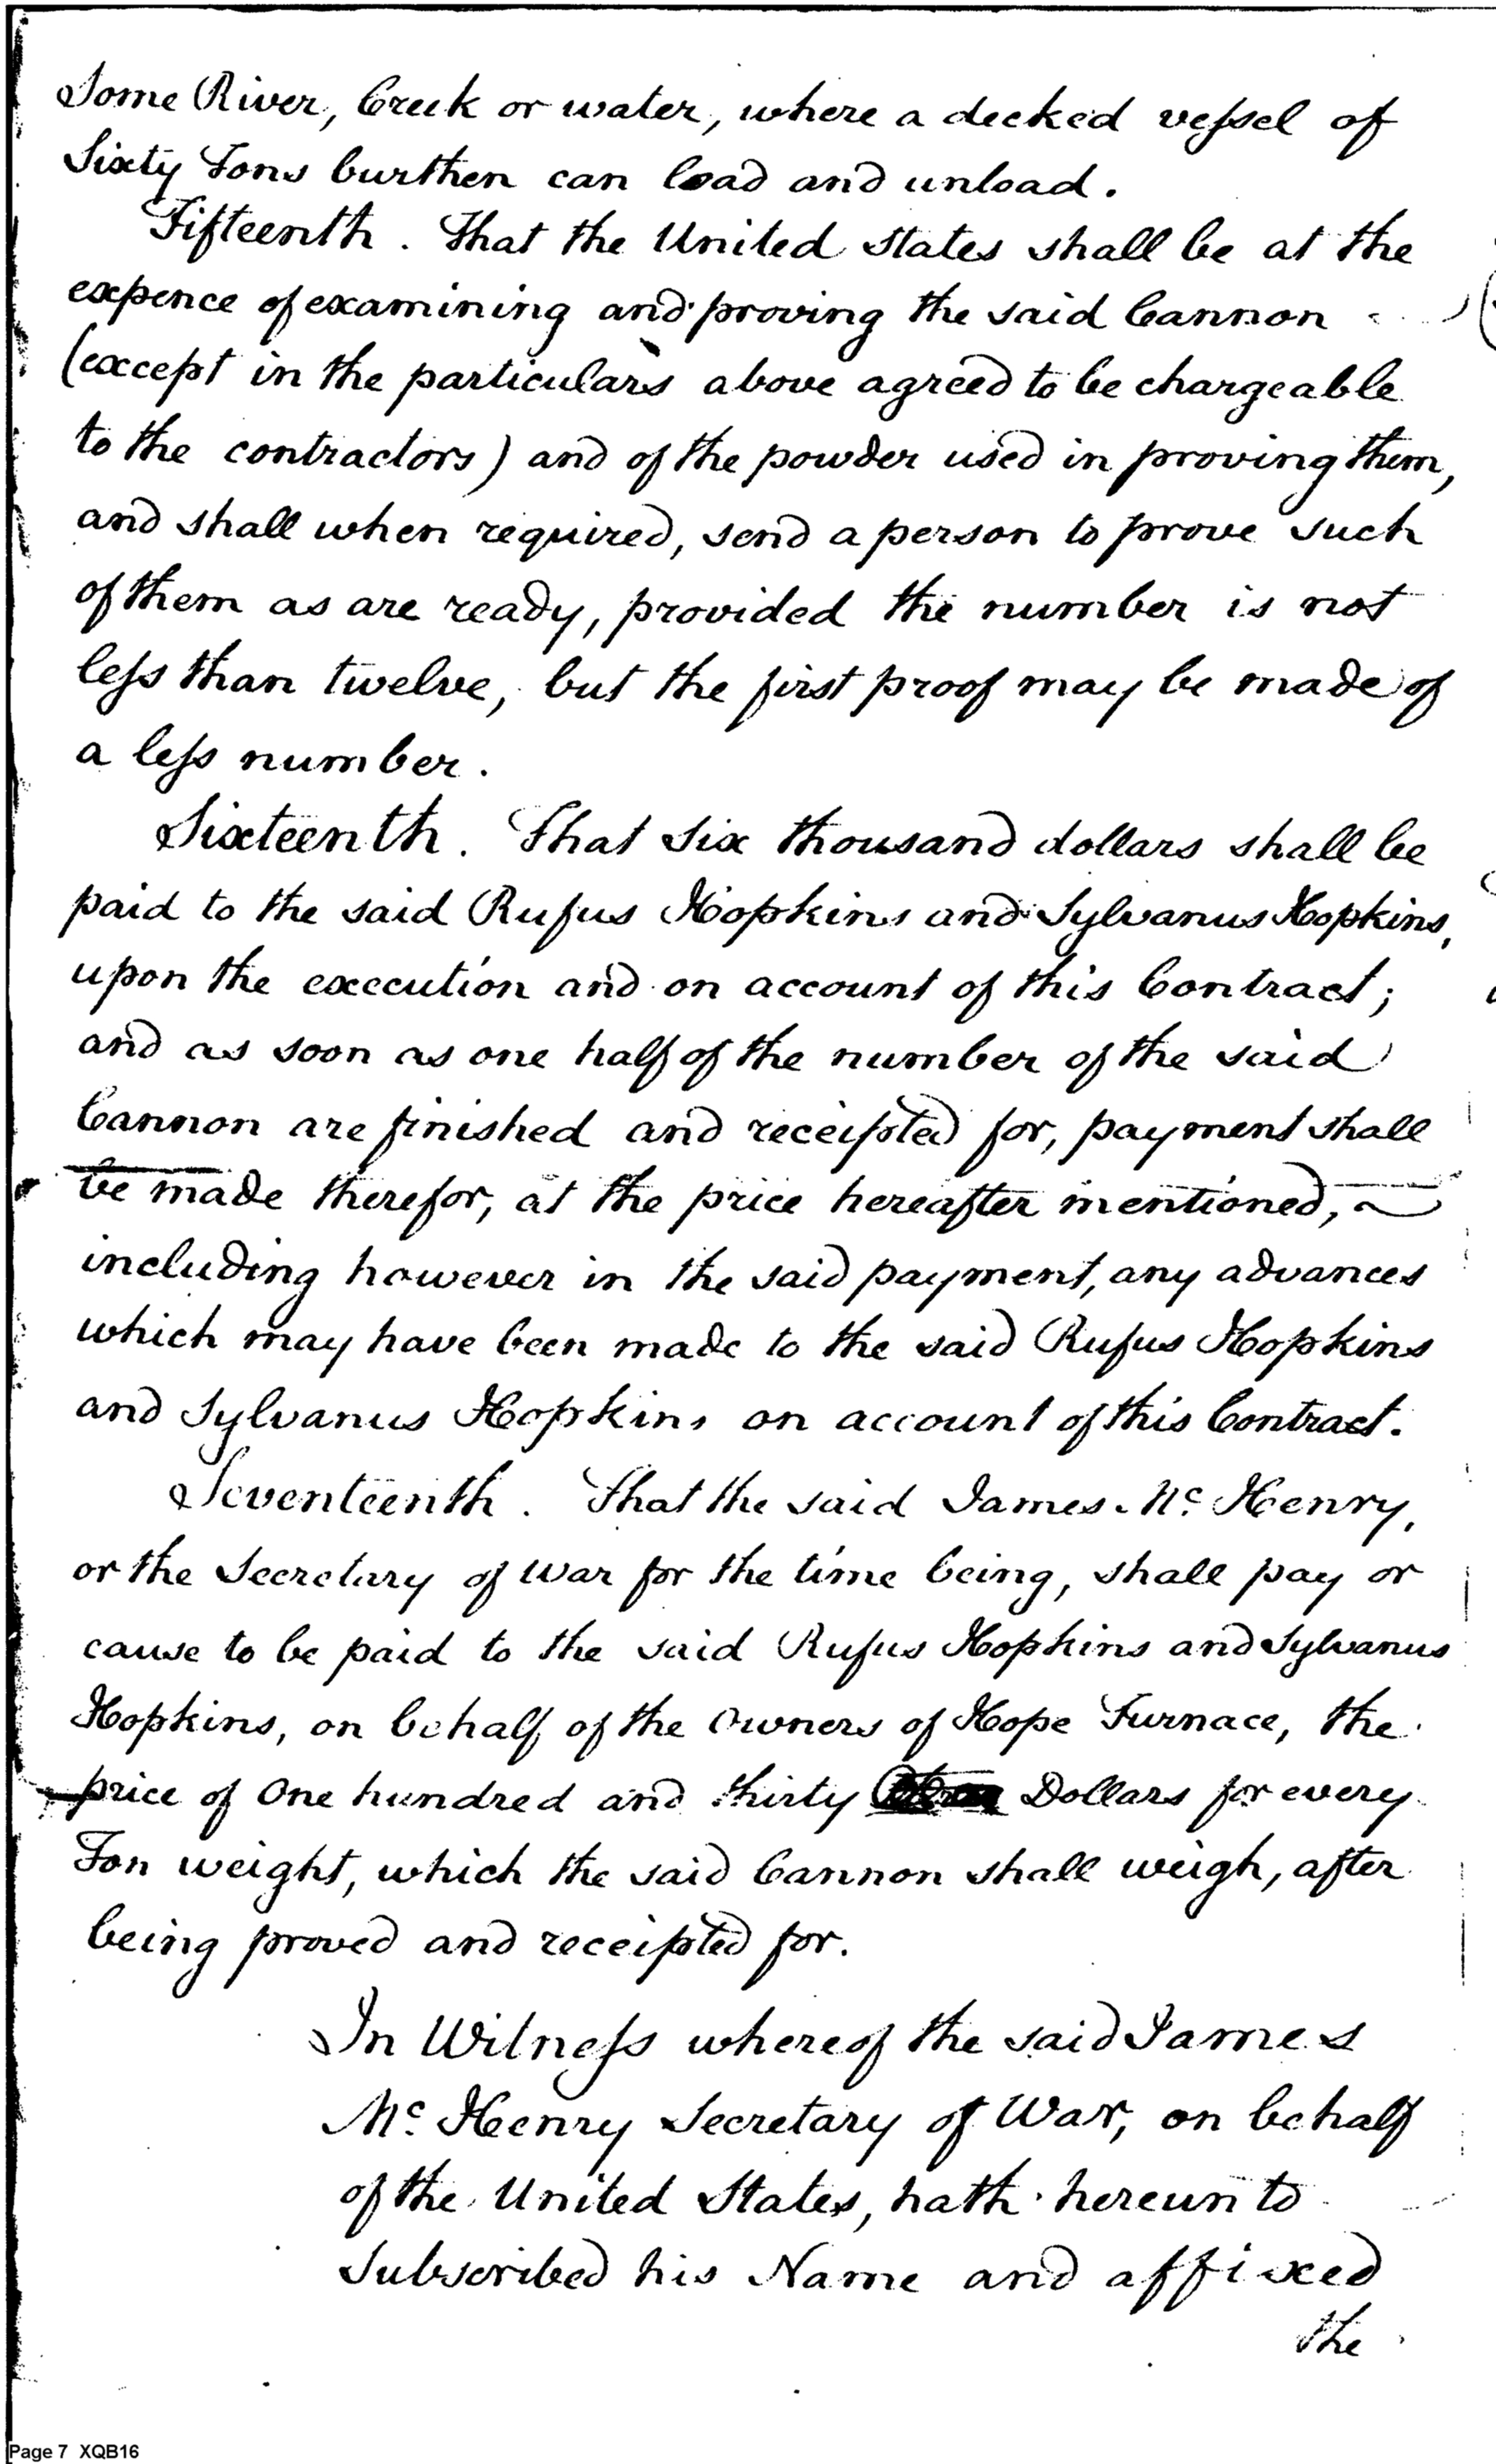 Some River, Creek or water, where a decked veſsel of
Sixty Tons burthen can load and unload.
Fifteenth. That the United States shall be at the
expence of examining and proving the said Cannon
(except in the particulars above agreed to be chargeable
to the contractors) and of the powder used in proving them,
and shall when required, send a person to prove such
of them as are ready, provided the number is not
leſs than twelve, but the first proof may be made of
a leſs number.
Sixteenth. That Six thousand dollars shall be
paid to the said Rufus Hopkins and Sylvanus Hopkins,
upon the execution and on account of this Contract;
and as soon as one half of the number of the said
Cannon are finished and receipted for, payment shall
be made therefor, at the price hereafter mentioned,
including however in the said payment, any advances
which may have been made to the said Rufus Hopkins
and Sylvanus Hopkins on account of this Contract.
Seventeenth. That the said James Mc. Henry,
or the Secretary of War for the time being, shall pay or
cause to be paid to the said Rufus Hopkins and Sylvanus
Hopkins, on behalf of the Owners of Hope Furnace, the
price of One hundred and thirty Dollars for every
Ton weight, which the said Cannon shall weigh, after
being proved and receipted for.
In Witneſs whereof the said James
Mc. Henry Secretary of War, on behalf
of the United States, hath hereunto
Subscribed his Name and affixed
the
Page 7 XQB16